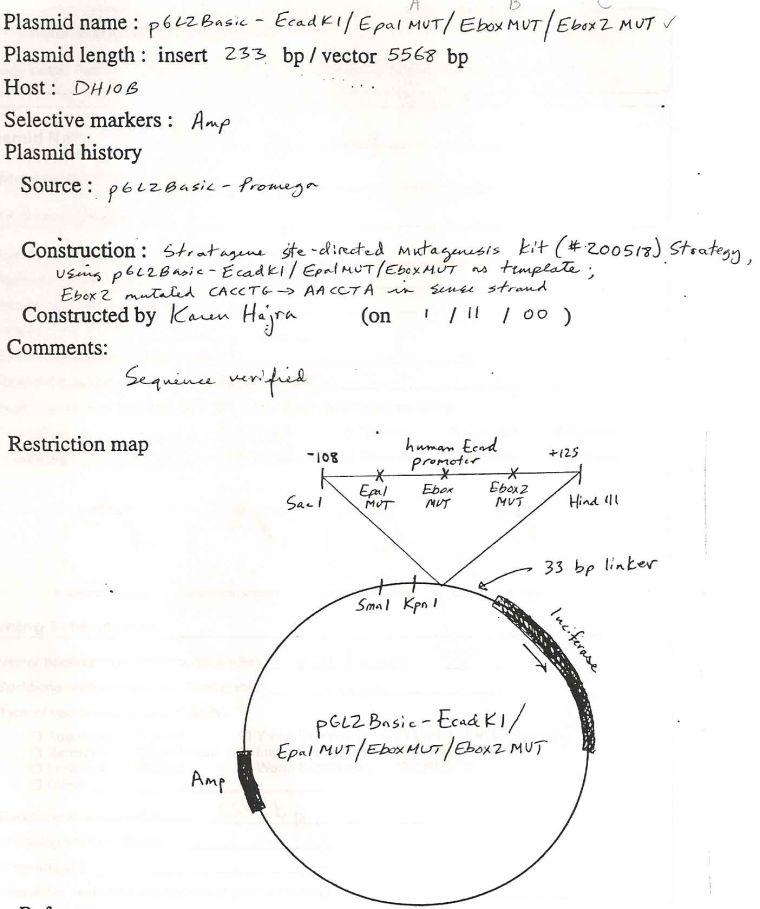 A B C
Plasmid name : pGL2Basic - EcadK1/EpalMUT/EboxMUT/Ebox2 MUT ✓
Plasmid length : insert 233 bp / vector 5568 bp
Host : DH10B
Selective markers : Amp
Plasmid history
Source : pGL2Basic - Promega
Construction : Stratagene site-directed mutagenesis kit (#200518) Strategy,
using pGL2Basic-EcadK1/EpalMUT/EboxMUT as template;
Ebox2 mutated CACCTG → AACCTA in sense strand
Constructed by Karen Hajra (on 1 / 11 / 00 )
Comments:
Sequence verified
Restriction map
-108 human Ecad +125
promoter
Sac I Epal Ebox Ebox2 Hind III
MUT MUT MUT
33 bp linker
Sma I Kpn I
luciferase
pGL2Basic-EcadK1/
EpalMUT/EboxMUT/Ebox2 MUT
Amp